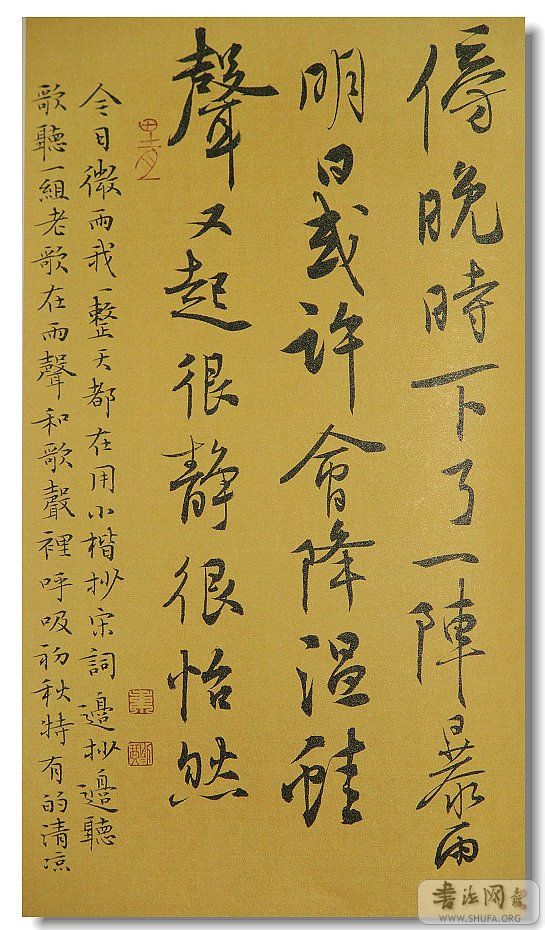 傍晚時下了一陣暴雨
明日或許會降温蛙
聲又起很静很怡然
今日微雨我一整天都在用小楷抄宋詞邊抄邊聽
歌聽一組老歌在雨聲和歌聲裡呼吸初秋特有的清凉
書法网
WWW.SHUFA.ORG